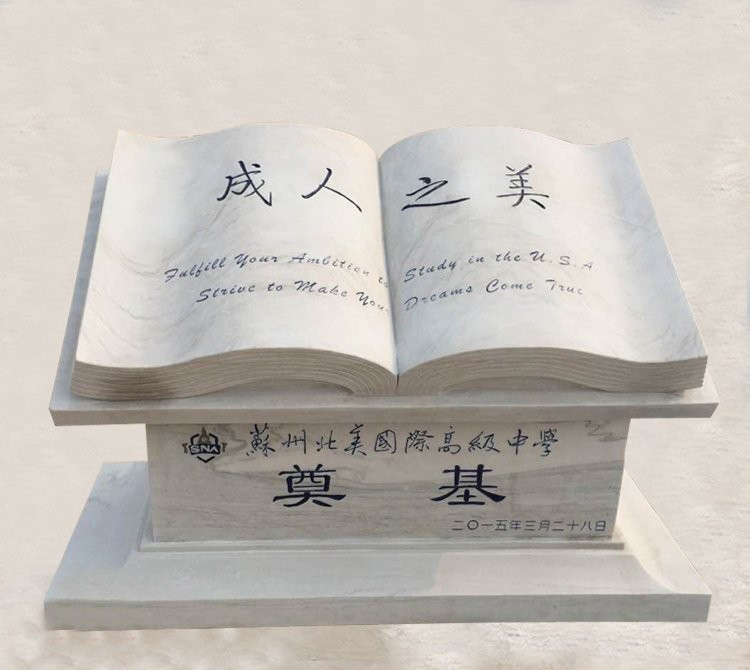 成人之美
Fulfill Your Ambition to Study in the U.S.A
Strive to Make Your Dreams Come True
SNA
蘇州北美國際高級中學
奠基
二〇一五年三月二十八日